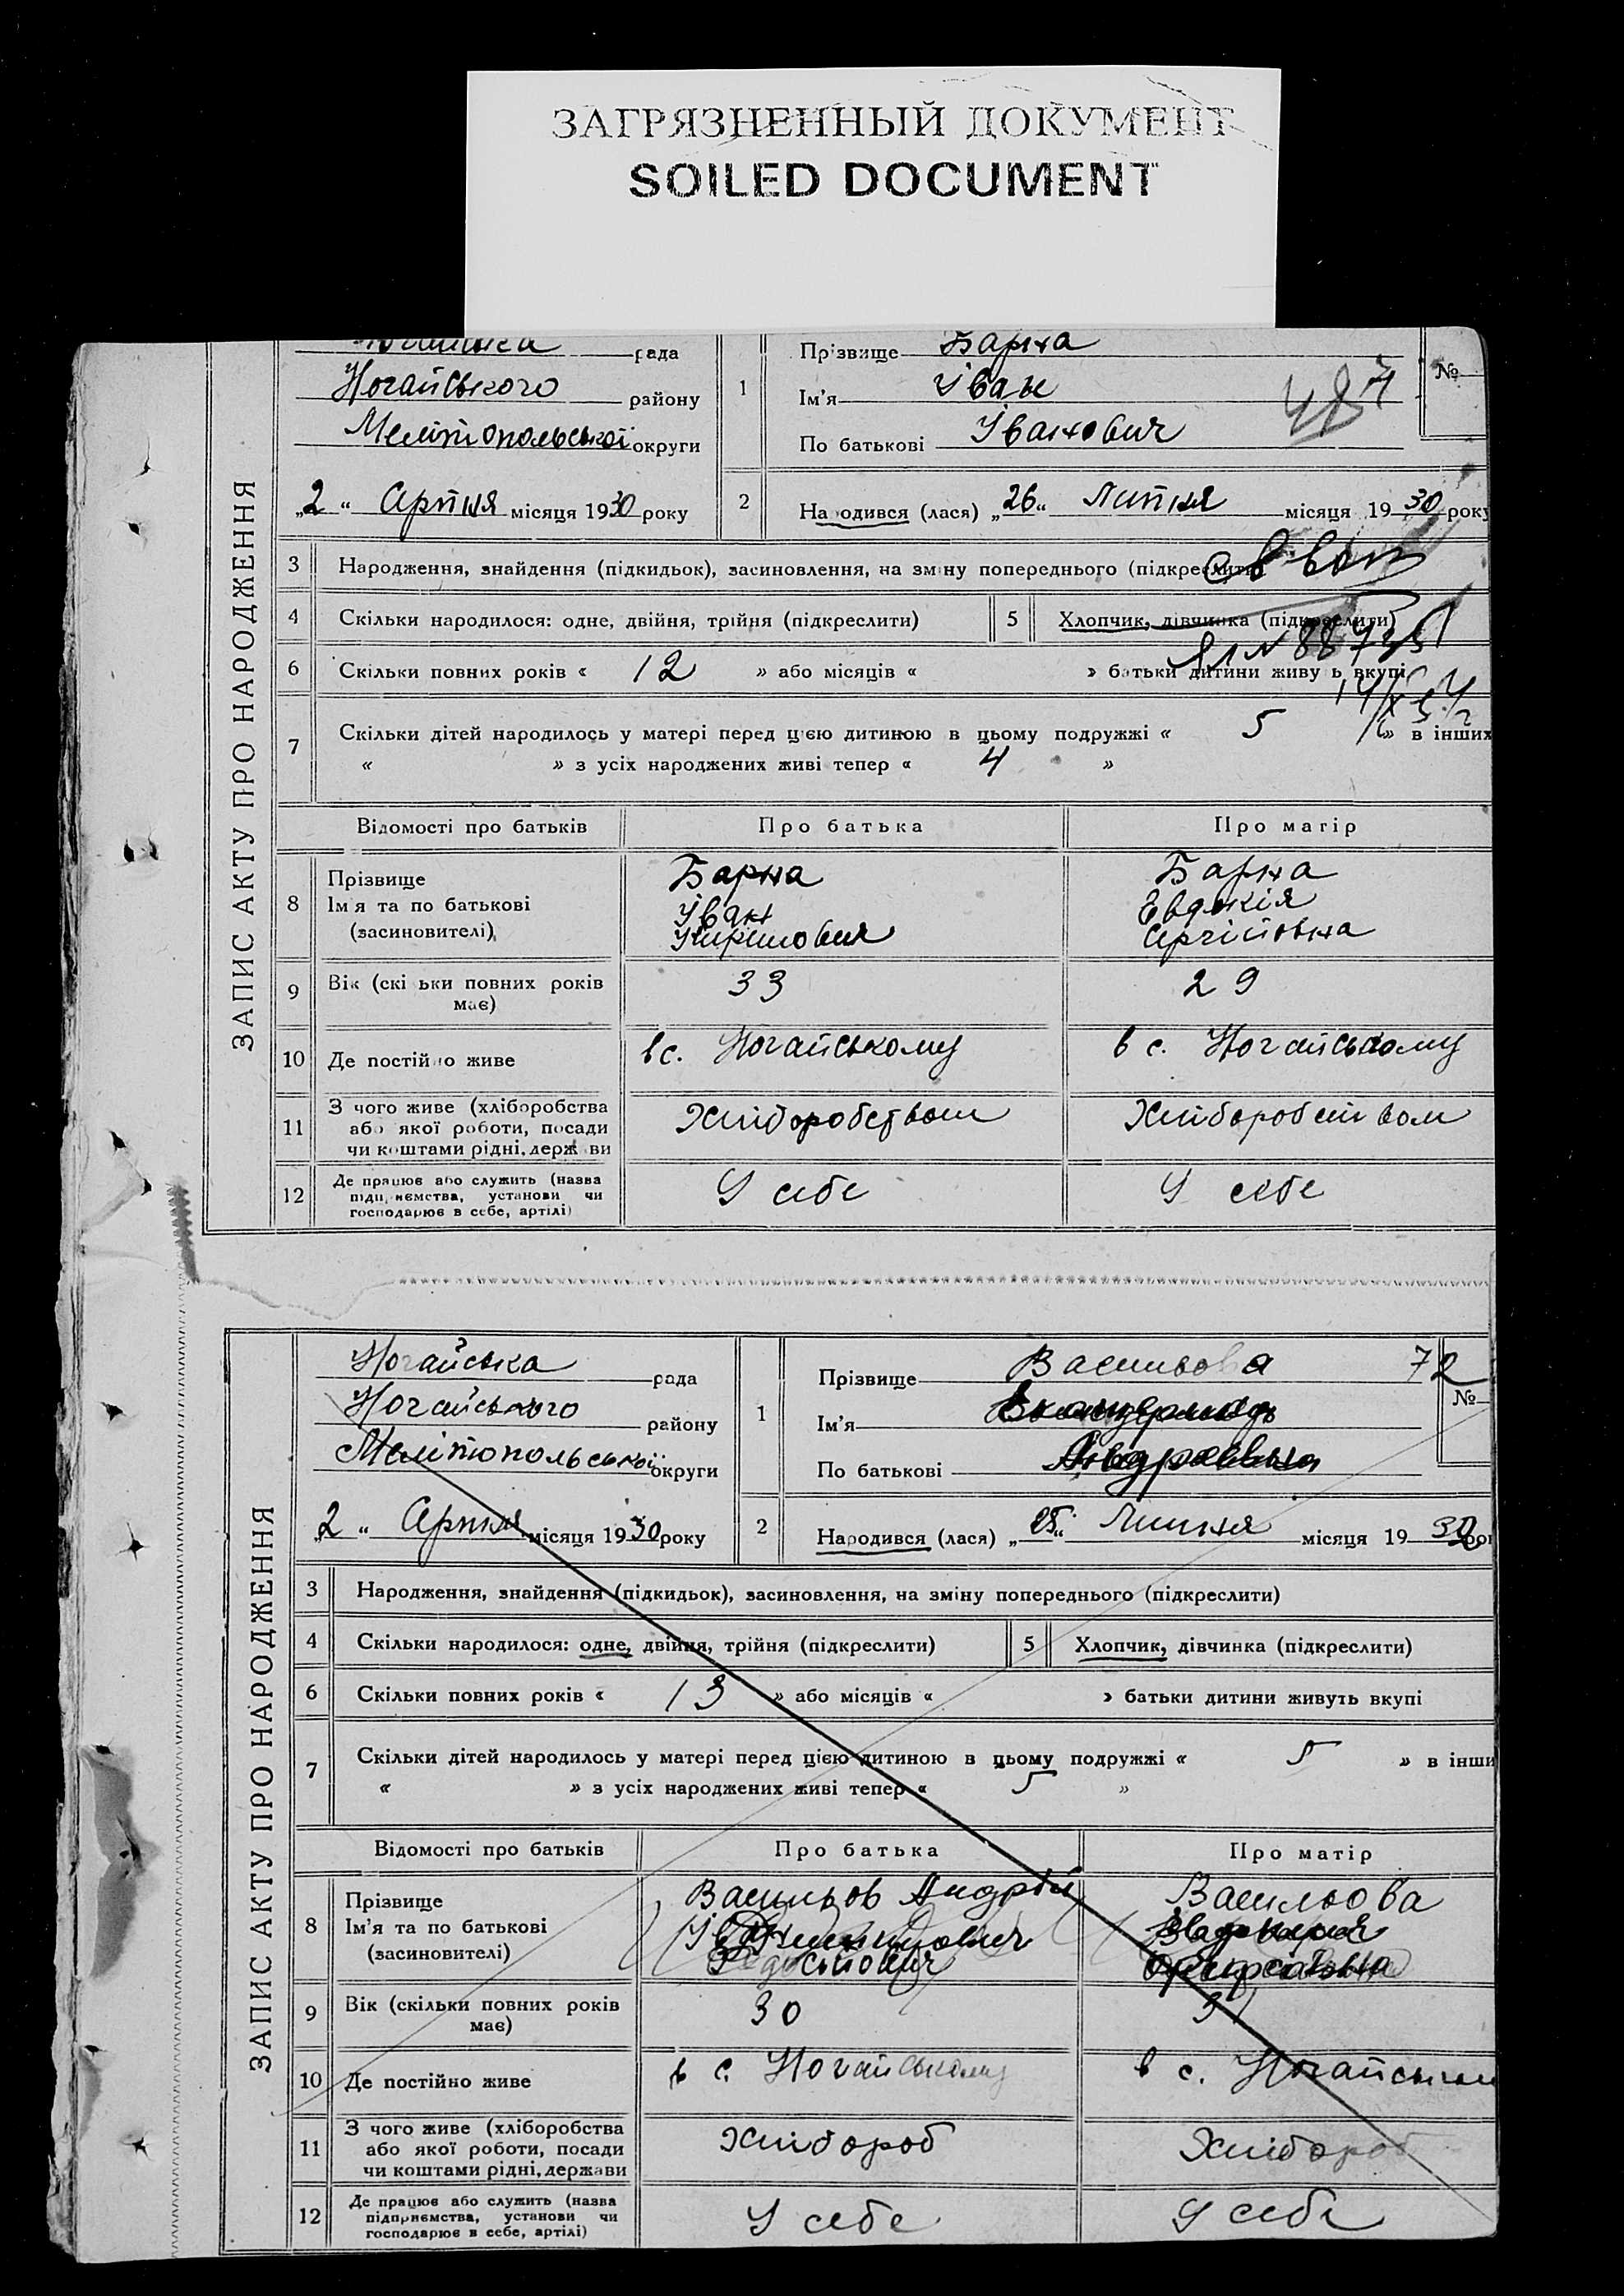 ЗАГРЯЗНЕННЫЙ ДОКУМЕНТ
SOILED DOCUMENT
ЗАПИС АКТУ ПРО НАРОДЖЕННЯ
рада
Ногайського району
Мелітопольської округи
„2“ Серпня місяця 1930 року
1
Прізвище Барна
Ім'я Іван
По батькові Іванович
№
2
Народився (лася) „26“ Липня місяця 1930 року
3 Народження, знайдення (підкидьок), засиновлення, на зміну попереднього
4 Скільки народилося: одне, двійня, трійня (підкреслити)
5 Хлопчик, дівчинка (підкреслити)
6 Скільки повних років « 12 » або місяців « » батьки дитини живуть вкупі
7 Скільки дітей народилось у матері перед цією дитиною в цьому подружжі « 5 » в інших
« » з усіх народжених живі тепер « 4 »
Відомості про батьків Про батька Про матір
8 Прізвище Барна Барна
Ім'я та по батькові Іван Евдокія
(засиновителі) Сергіївна
9 Вік (скільки повних років має) 33 29
10 Де постійно живе в с. Ногайському в с. Ногайському
11 З чого живе (хліборобства
або якої роботи, посади
чи коштами рідні, держави
Хліборобством Хліборобством
12 Де працює або служить (назва
підприємства, установи чи
господарює в себе, артілі)
У себе У себе
ЗАПИС АКТУ ПРО НАРОДЖЕННЯ
Ногайська рада
Ногайського району
Мелітопольської округи
„2“ Серпня місяця 1930 року
1
Прізвище Васильова 72
Ім'я
По батькові
№
2
Народився (лася) „ “ Липня місяця 1930
3 Народження, знайдення (підкидьок), засиновлення, на зміну попереднього (підкреслити)
4 Скільки народилося: одне, двійня, трійня (підкреслити)
5 Хлопчик, дівчинка (підкреслити)
6 Скільки повних років « 13 » або місяців « » батьки дитини живуть вкупі
7 Скільки дітей народилось у матері перед цією дитиною в цьому подружжі « 5 » в інши
« » з усіх народжених живі тепер « 5 »
Відомості про батьків Про батька Про матір
8 Прізвище Васильов Андрій Васильова
Ім'я та по батькові
(засиновителі)
9 Вік (скільки повних років має) 30 31
10 Де постійно живе в с. Ногайському в с.
11 З чого живе (хліборобства
або якої роботи, посади
чи коштами рідні, держави
Хлібороб Хлібороб
12 Де працює або служить (назва
підприємства, установи чи
господарює в себе, артілі)
У себе У себе